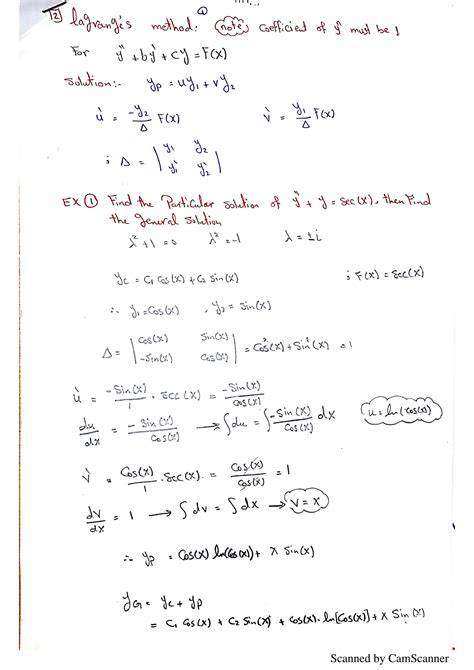 ①
[2] Lagrange's method: (note) coefficient of y'' must be 1
For y'' + by' + cy = F(x)
Solution:- yp = uy₁ + vy₂
u' = -y₂/Δ F(x) v' = y₁/Δ F(x)
; Δ = | y₁ y₂ |
| y₁' y₂' |
EX ① Find the Particular solution of y'' + y = sec(x), then Find
the general solution
λ² + 1 = 0 λ² = -1 λ = ±i
yc = C₁ Cos(x) + C₂ Sin(x) ; F(x) = Sec(x)
∴ y₁ = Cos(x) , y₂ = Sin(x)
Δ = | Cos(x) Sin(x) | = Cos²(x) + Sin²(x) = 1
| -Sin(x) Cos(x) |
u' = -Sin(x)/1 . Sec(x) = -Sin(x)/Cos(x)
du/dx = - Sin(x)/Cos(x) → ∫du = ∫ -Sin(x)/Cos(x) dx u = ln(cos(x))
v' = Cos(x)/1 . Sec(x) = Cos(x)/Cos(x) = 1
dv/dx = 1 → ∫dv = ∫dx → v = x
∴ yp = Cos(x) ln(Cos(x)) + x Sin(x)
yG = yc + yp
= C₁ Cos(x) + C₂ Sin(x) + Cos(x). ln[Cos(x)] + x Sin(x)
Scanned by CamScanner